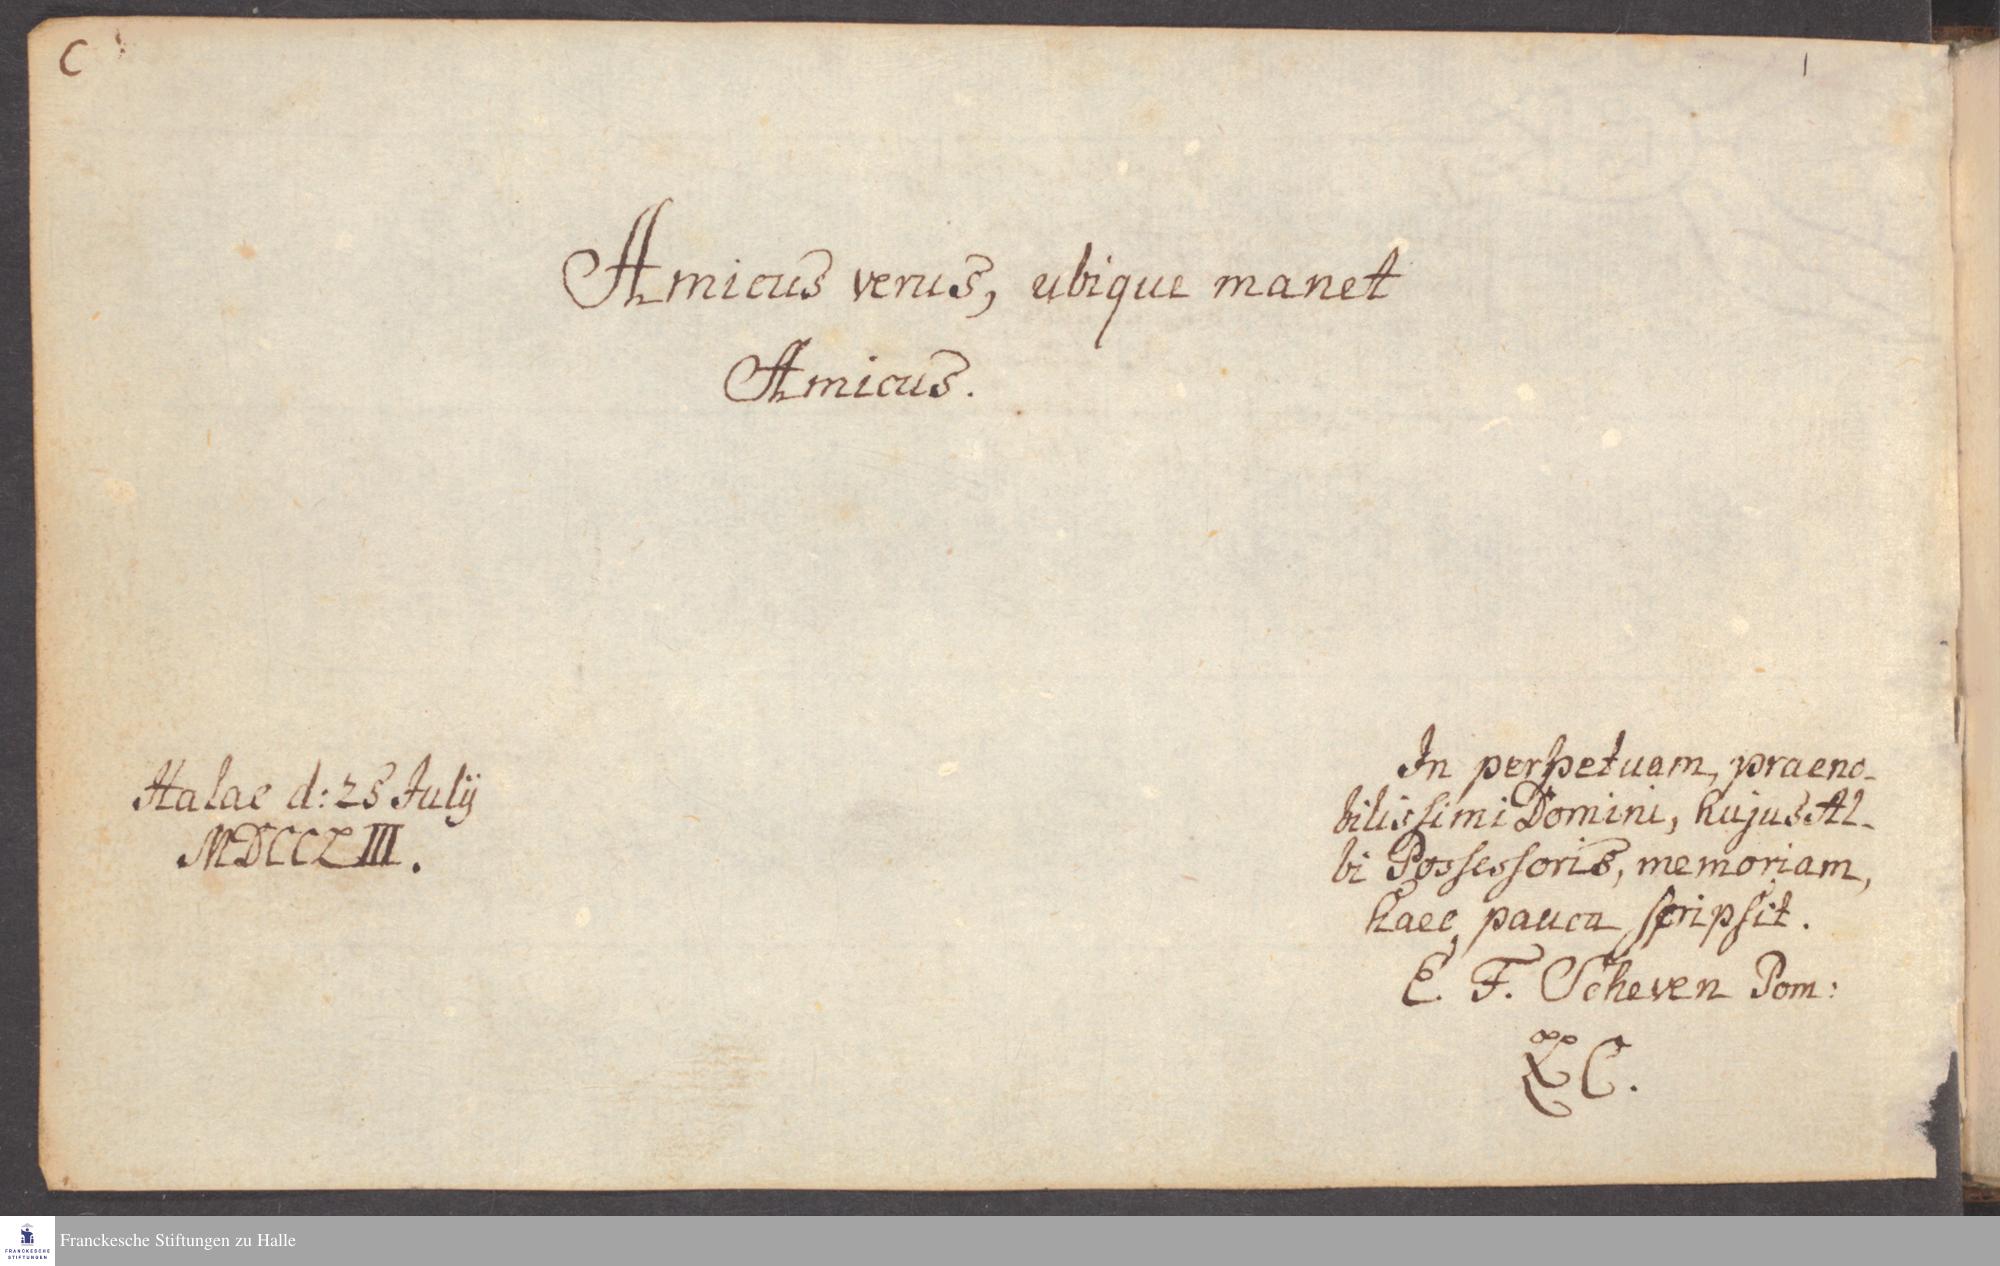 C
1
Amicus verus, ubique manet
Amicus.
Halae d: 28 Julij
MDCCLIII.
In perpetuam, praeno-
bilissimi Domini, hujus Al-
bi Possessoris, memoriam,
haec pauca scripsit.
E. F. Scheven Pom:
C.
Franckesche Stiftungen zu Halle
FRANCKESCHE
STIFTUNGEN